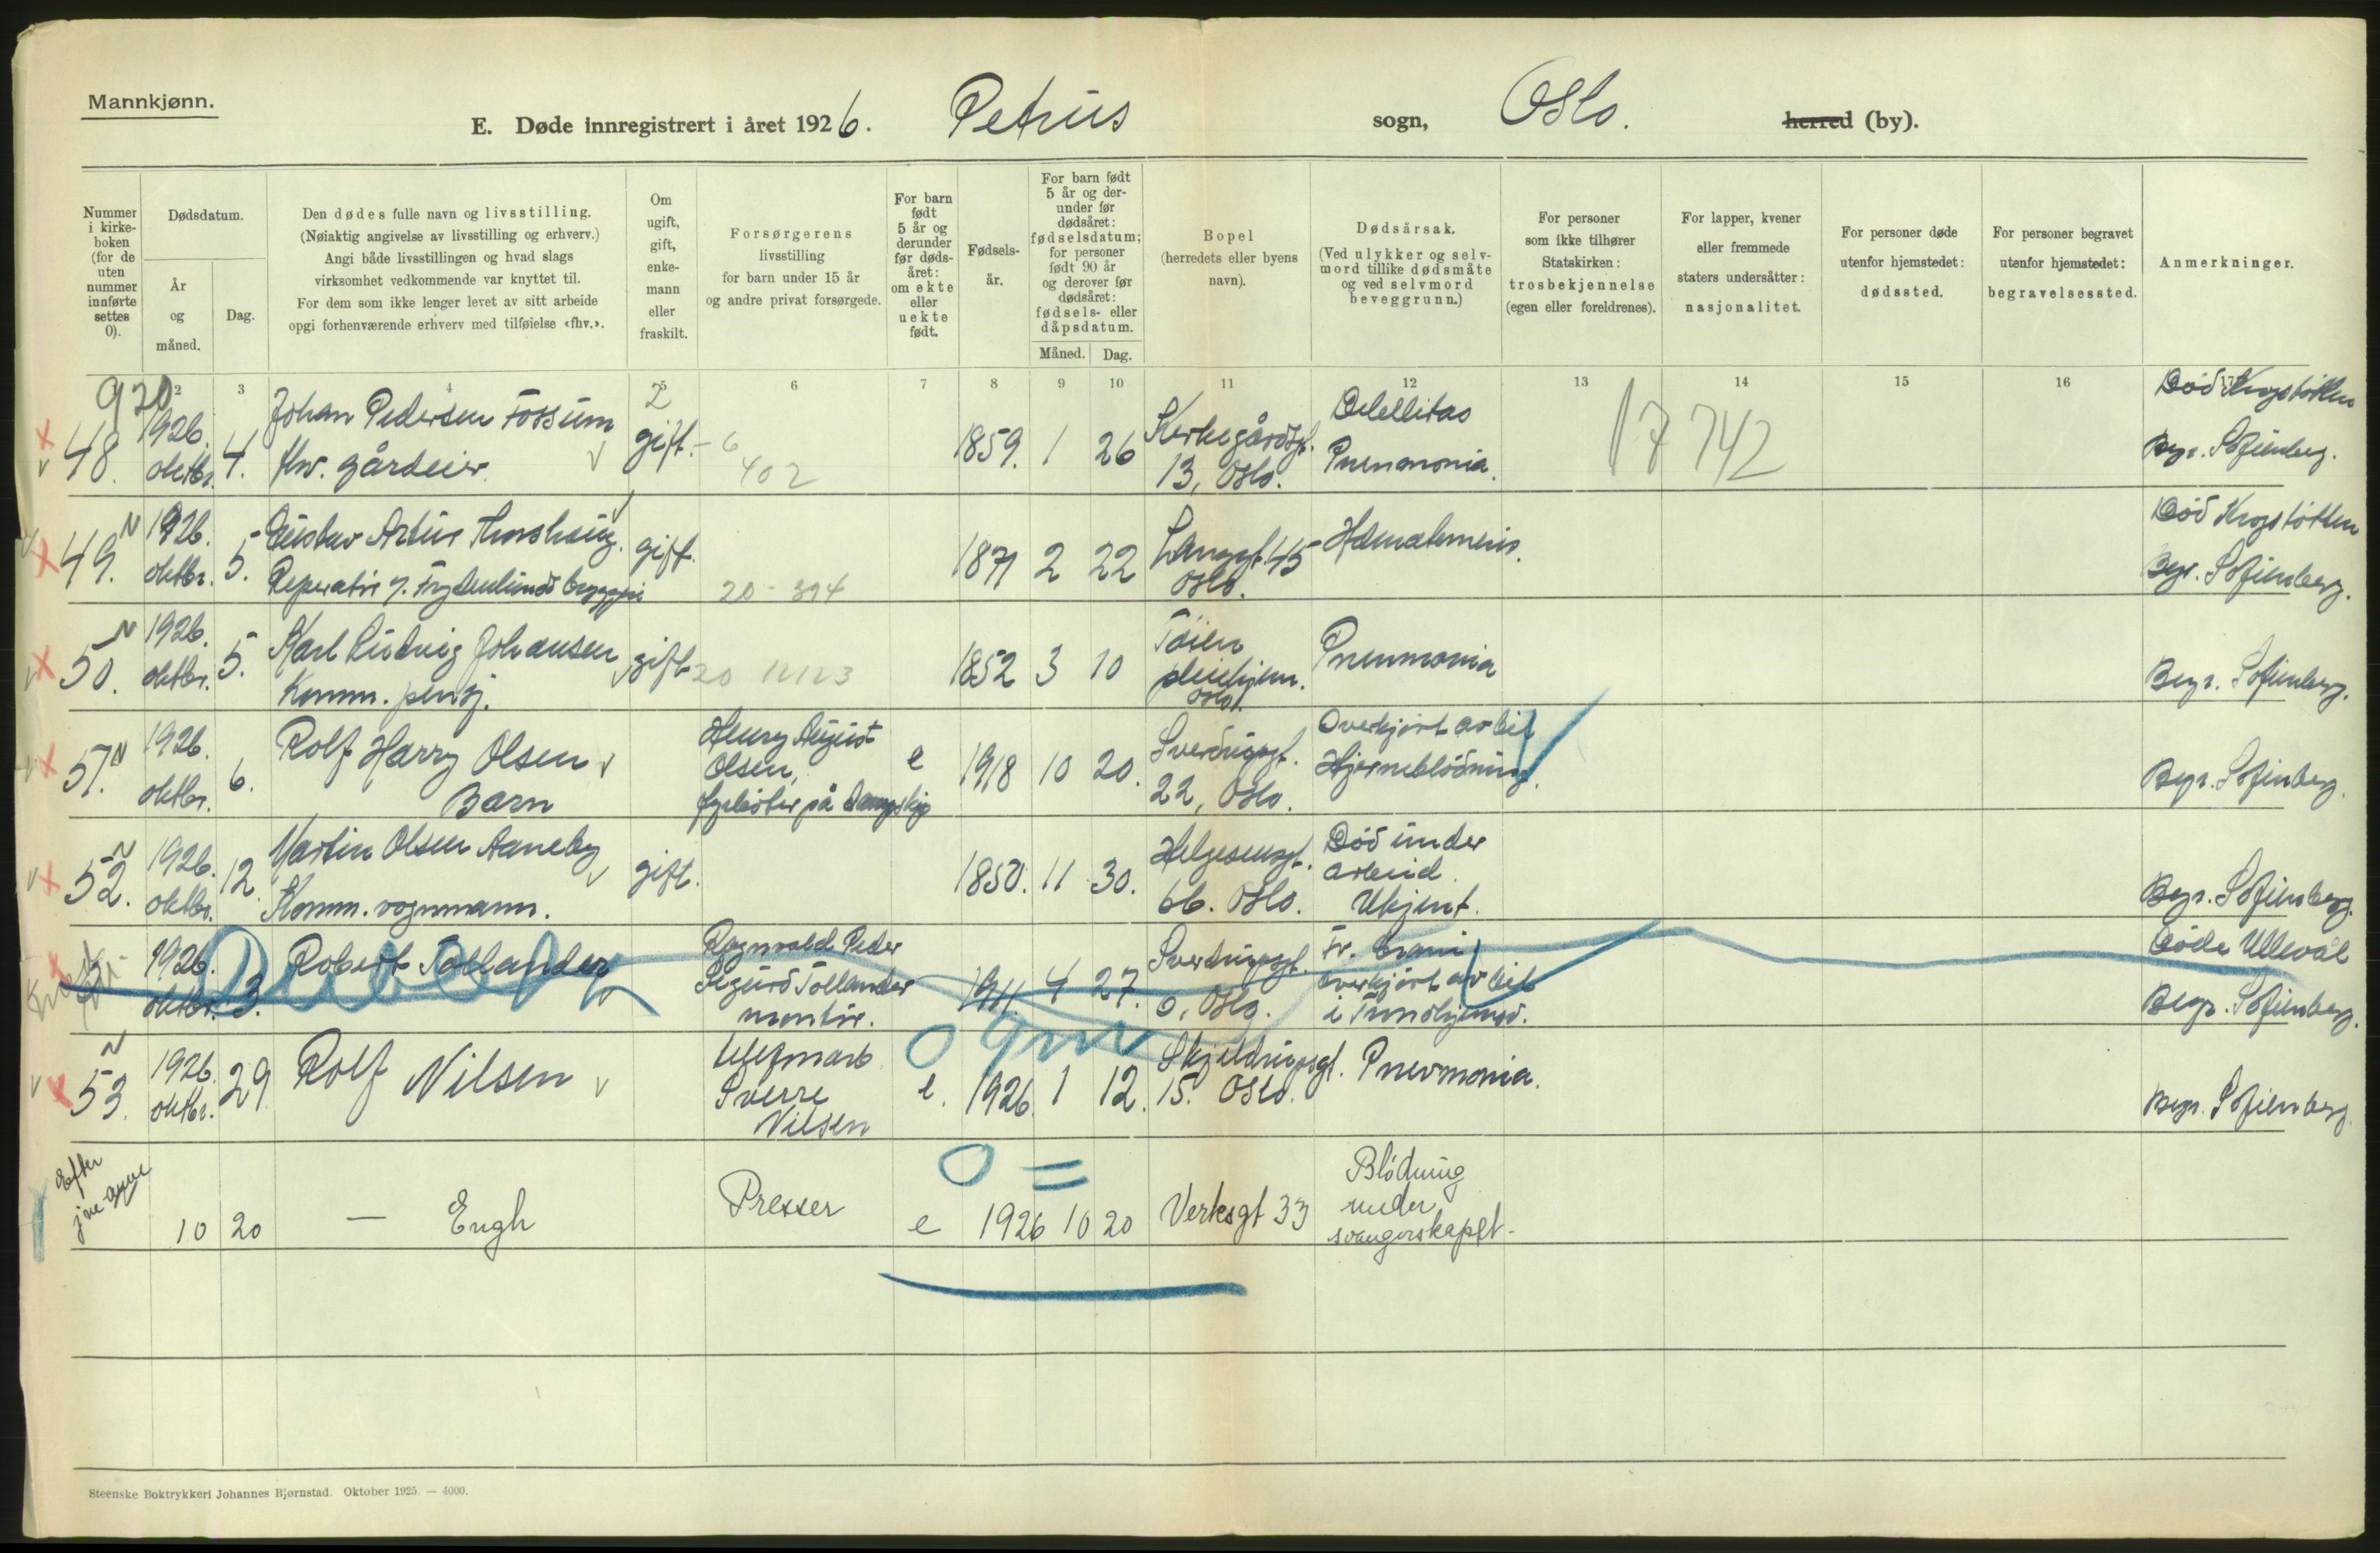 Mannkjønn.
E. Døde innregistrert i året 1926. Petrus sogn, Oslo. herred (by).
Nummer i kirkeboken (for de uten nummer innførte settes 0).
Dødsdatum.
År og måned.
Dag.
Den dødes fulle navn og livsstilling.
(Nøiaktig angivelse av livsstilling og erhverv.)
Angi både livsstillingen og hvad slags
virksomhet vedkommende var knyttet til.
For dem som ikke lenger levet av sitt arbeide
opgi forhenværende erhverv med tilføielse «fhv.».
Om ugift, gift, enkemann eller fraskilt.
Forsørgerens
livsstilling
for barn under 15 år
og andre privat forsørgede.
For barn født 5 år og derunder før dødsåret: om ekte eller uekte født.
Fødselsår.
For barn født 5 år og derunder før dødsåret: fødselsdatum; for personer født 90 år og derover før dødsåret: fødsels- eller dåpsdatum.
Måned. Dag.
Bopel
(herredets eller byens
navn).
Dødsårsak.
(Ved ulykker og selvmord tillike dødsmåte og ved selvmord beveggrunn.)
For personer
som ikke tilhører
Statskirken:
trosbekjennelse
(egen eller foreldrenes).
For lapper, kvener
eller fremmede
staters undersåtter:
nasjonalitet.
For personer døde
utenfor hjemstedet:
dødssted.
For personer begravet
utenfor hjemstedet:
begravelsessted.
Anmerkninger.
2 3 4 5 6 7 8 9 10 11 12 13 14 15 16 17
920
48. 1926. oktbr. 4. Johan Pedersen Fossum fhv. gårdeier. 2 gift. 6 402 1859. 1 26 Kirkegårdsgt. 13, Oslo. Pneumonia. 17 742 Død Krogstøtten Begr. Sofienberg.
49. N 1926. oktbr. 5. Gustav Artur Thorshaug. Reparatør v. Frydenlunds bryggeri gift. 20 - 394 1871 2 22 Langgt. 45 Oslo. Hæmatemesis. Død Krogstøtten Begr. Sofienberg.
50. N 1926. oktbr. 5. Karl Ludvig Johansen Komm. pensj. gift 20 12123 1852 3 10 Tøien pleiehjem. Oslo. Pneumonia Begr. Sofienberg.
51. N 1926. oktbr. 6. Rolf Harry Olsen Barn Henry August Olsen, fyrbøter på dampskip e 1918 10 20. Sverdrupsgt. 22, Oslo. Overkjørt av bil Hjerneblødning. Begr. Sofienberg.
52. N 1926. oktbr. 12. Martin Olsen Aaneby Komm. vognmann. gift. 1850. 11 30. Helgesensgt. 66. Oslo. Død under arbeid. Ukjent. Begr. Sofienberg.
1926. oktbr. 3. Robert Tollander Ragnvald Peder Sigurd Tollander montør. 1911. 4 27. Sverdrupsgt. 0, Oslo. Fr. crani overkjørt av bil Døde Ullevål Begr. Sofienberg.
53. N 1926. oktbr. 29 Rolf Nilsen Sverre Nilsen e. 1926. 1 12. Skjeldrupsgt. 15. Oslo. Pnevmonia. Begr. Sofienberg
0 =
Efter 10 20 — Engh Presser e 1926 10 20 Verksgt 33 Blødning under svangerskapet -
Steenske Boktrykkeri Johannes Bjørnstad. Oktober 1925. — 4000.